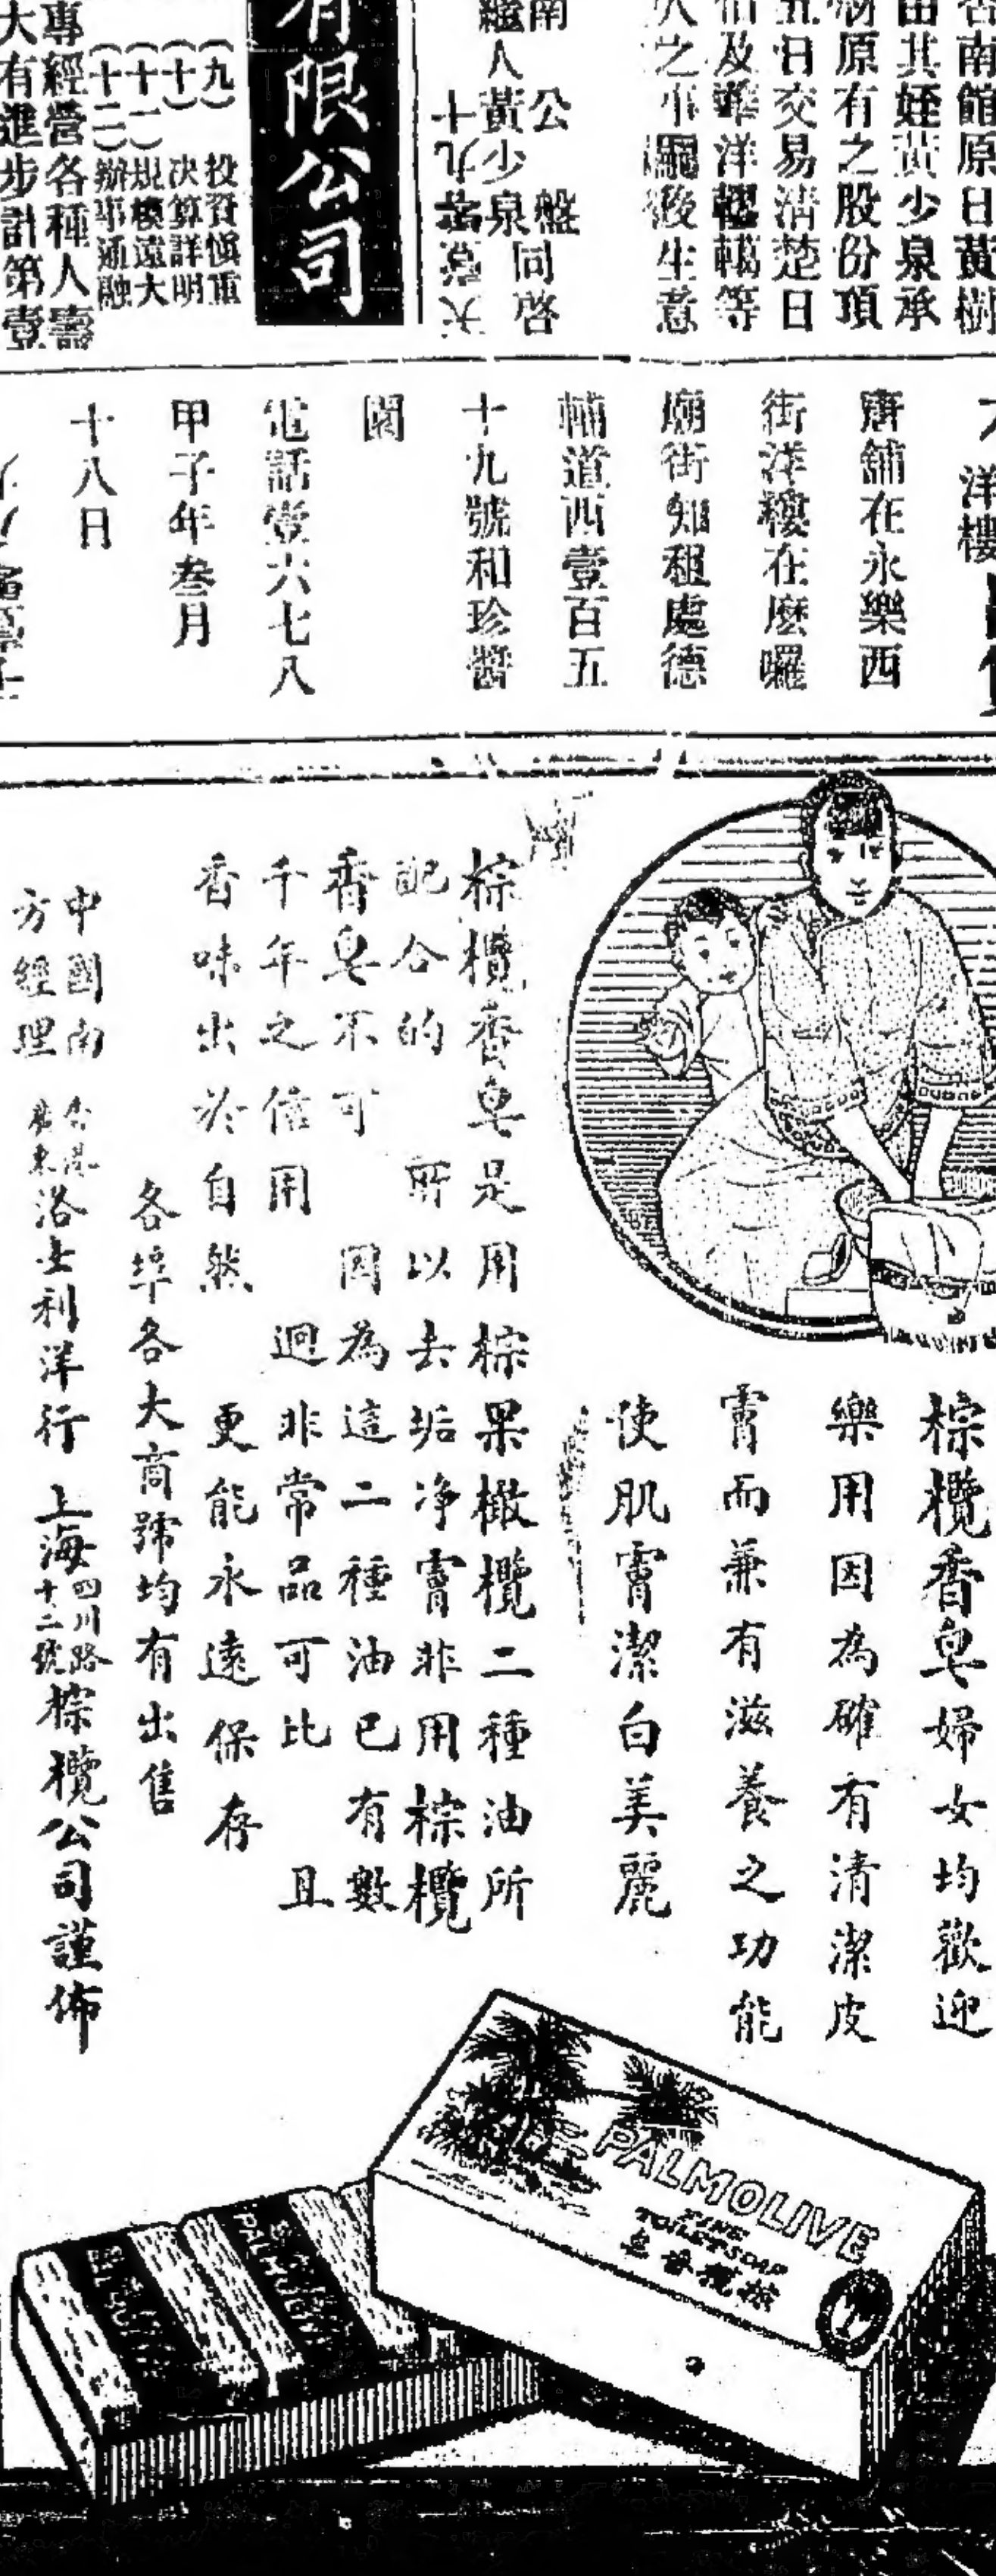 杏南館原日黃樹
由其姪黃少泉承
原有之股份頂
五日交易清楚日
及華洋轇轕等
後生意
繼人黃少泉
公
盤
同啓
有限公司
(九)投資慎重
(十)決算詳明
(十一)規模遠大
(十二)辦事通融
專經營各種人壽
大有進步計第壹
洋樓
唐舖在永樂西
街洋樓在麼囉
廟街知租處德
輔道西壹百五
十九號和珍醬
園
電話壹六七八
甲子年叁月
十八日
棕欖香皂婦女均歡迎
樂用因為確有清潔皮
膚而兼有滋養之功能
使肌膚潔白美麗
棕欖香皂是用棕果橄欖二種油所
配合的 所以去垢净膚非用棕欖
香皂不可 因為這二種油已有數
千年之信用 迥非常品可比 且
香味出於自然 更能永遠保存
各埠各大商號均有出售
中國南方經理 香港廣東洛士利洋行 上海四川路十二號棕欖公司謹佈
PALMOLIVE
FINE
TOILET SOAP
皂香欖棕
PALMOLIVE